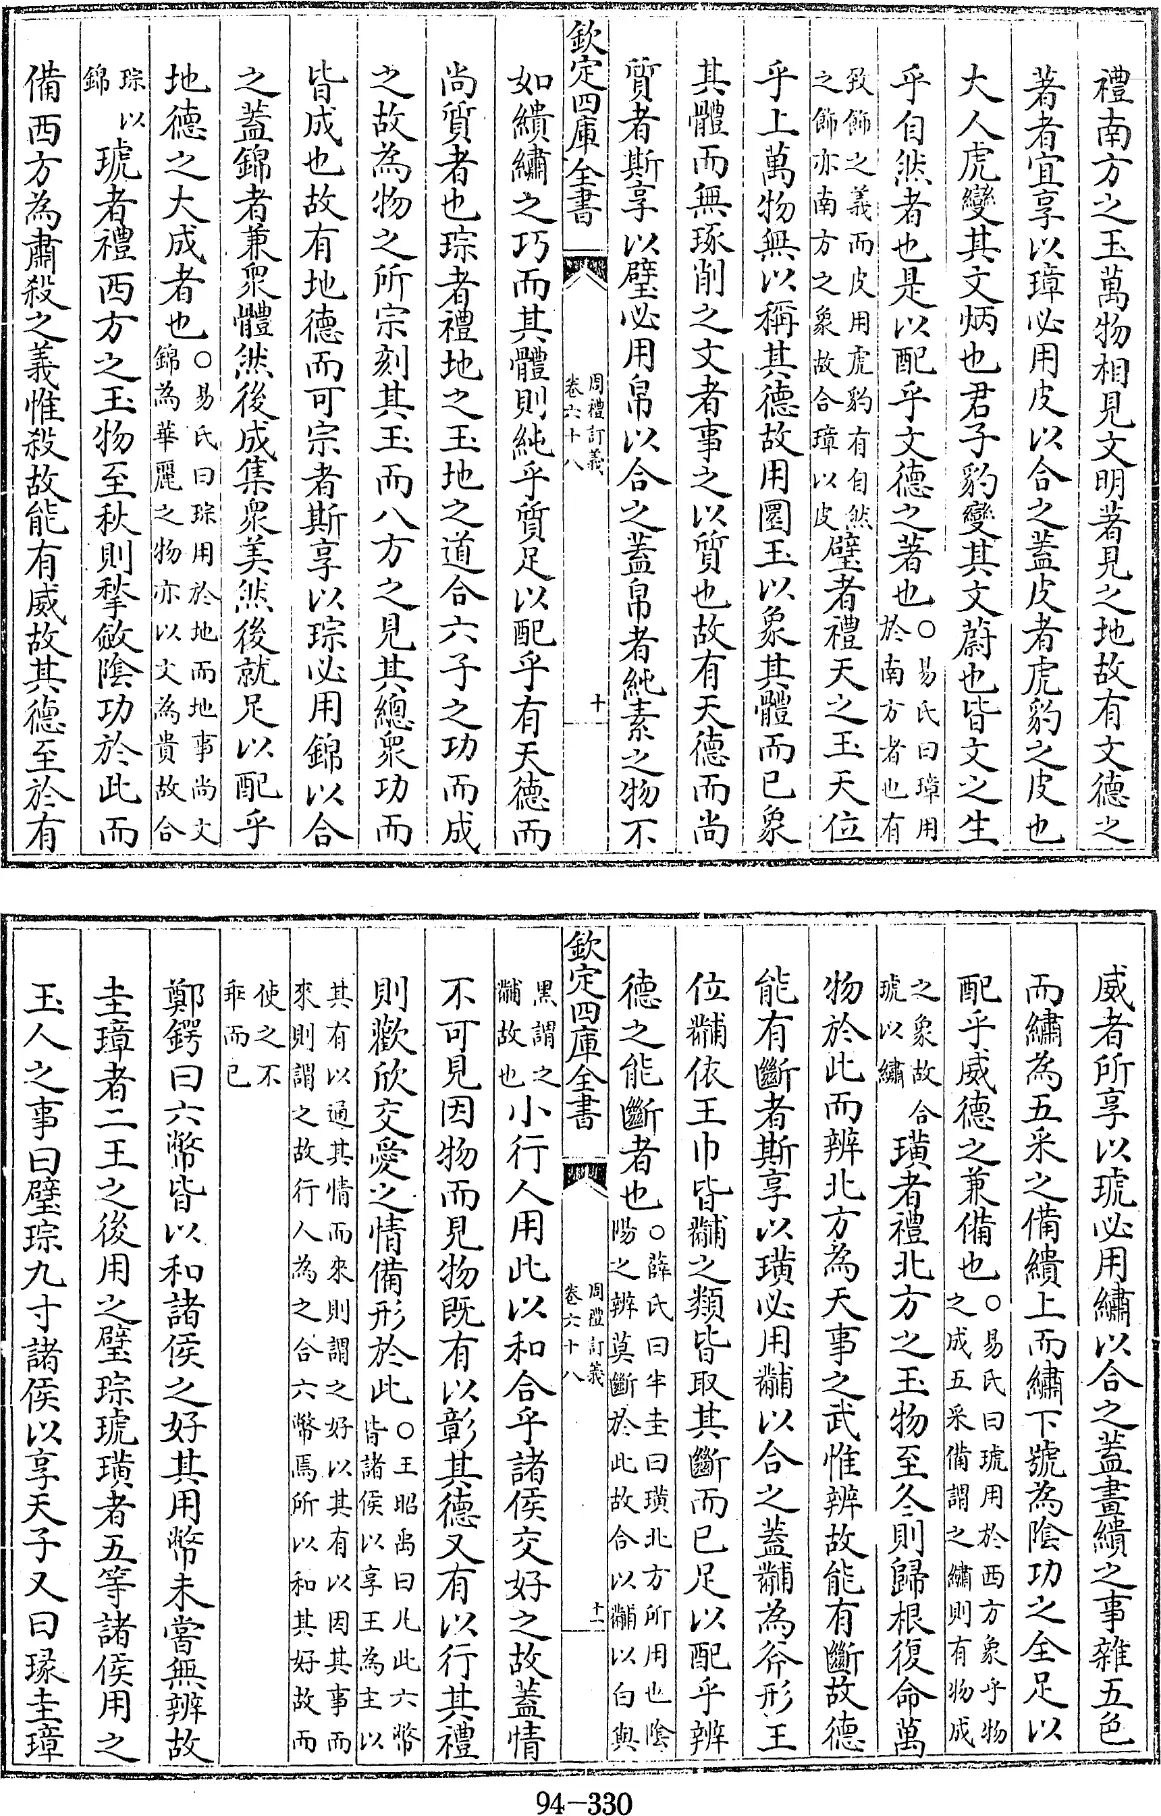 禮南方之玉萬物相見文明著見之地故有文德之
著者宜享以璋必用皮以合之蓋皮者虎豹之皮也
大人虎變其文炳也君子豹變其文蔚也皆文之生
乎自然者也是以配乎文德之著也○易氏曰璋用
於南方者也有
致飾之義而皮用虎豹有自然
之飾亦南方之象故合璋以皮
璧者禮天之玉天位
乎上萬物無以稱其德故用圜玉以象其體而已象
其體而無琢削之文者事之以質也故有天德而尚
質者斯享以璧必用帛以合之蓋帛者純素之物不
欽定四庫全書
周禮訂義
卷六十八
十
如繢繡之巧而其體則純乎質足以配乎有天德而
尚質者也琮者禮地之玉地之道合六子之功而成
之故為物之所宗刻其玉而八方之見其緫衆功而
皆成也故有地德而可宗者斯享以琮必用錦以合
之蓋錦者兼衆體然後成集衆美然後就足以配乎
地德之大成者也○易氏曰琮用於地而地事尚文
錦為華麗之物亦以文為貴故合
琮以
錦
琥者禮西方之玉物至秋則揫斂陰功於此而
備西方為肅殺之義惟殺故能有威故其德至於有
威者所享以琥必用繡以合之蓋畫繢之事雜五色
而繡為五采之備繢上而繡下號為陰功之全足以
配乎威德之兼備也○易氏曰琥用於西方象乎物
之成五采備謂之繡則有物成
之象故合
琥以繡
璜者禮北方之玉物至冬則歸根復命萬
物於此而辨北方為天事之武惟辨故能有斷故德
能有斷者斯享以璜必用黼以合之蓋黼為斧形王
位黼依王巾皆黼之類皆取其斷而已足以配乎辨
德之能斷者也○薛氏曰半圭曰璜北方所用也陰
陽之辨莫斷於此故合以黼以白與
欽定四庫全書
周禮訂義
卷六十八
十一
黑謂之
黼故也
小行人用此以和合乎諸侯交好之故蓋情
不可見因物而見物既有以彰其德又有以行其禮
則歡欣交愛之情備形於此○王昭禹曰凡此六幣
皆諸侯以享王為主以
其有以通其情而來則謂之好以其有以因其事而
來則謂之故行人為之合六幣焉所以和其好故而
使之不
乖而已
鄭鍔曰六幣皆以和諸侯之好其用幣未嘗無辨故
圭璋者二王之後用之璧琮琥璜者五等諸侯用之
玉人之事曰璧琮九寸諸侯以享天子又曰瑑圭璋
94-330